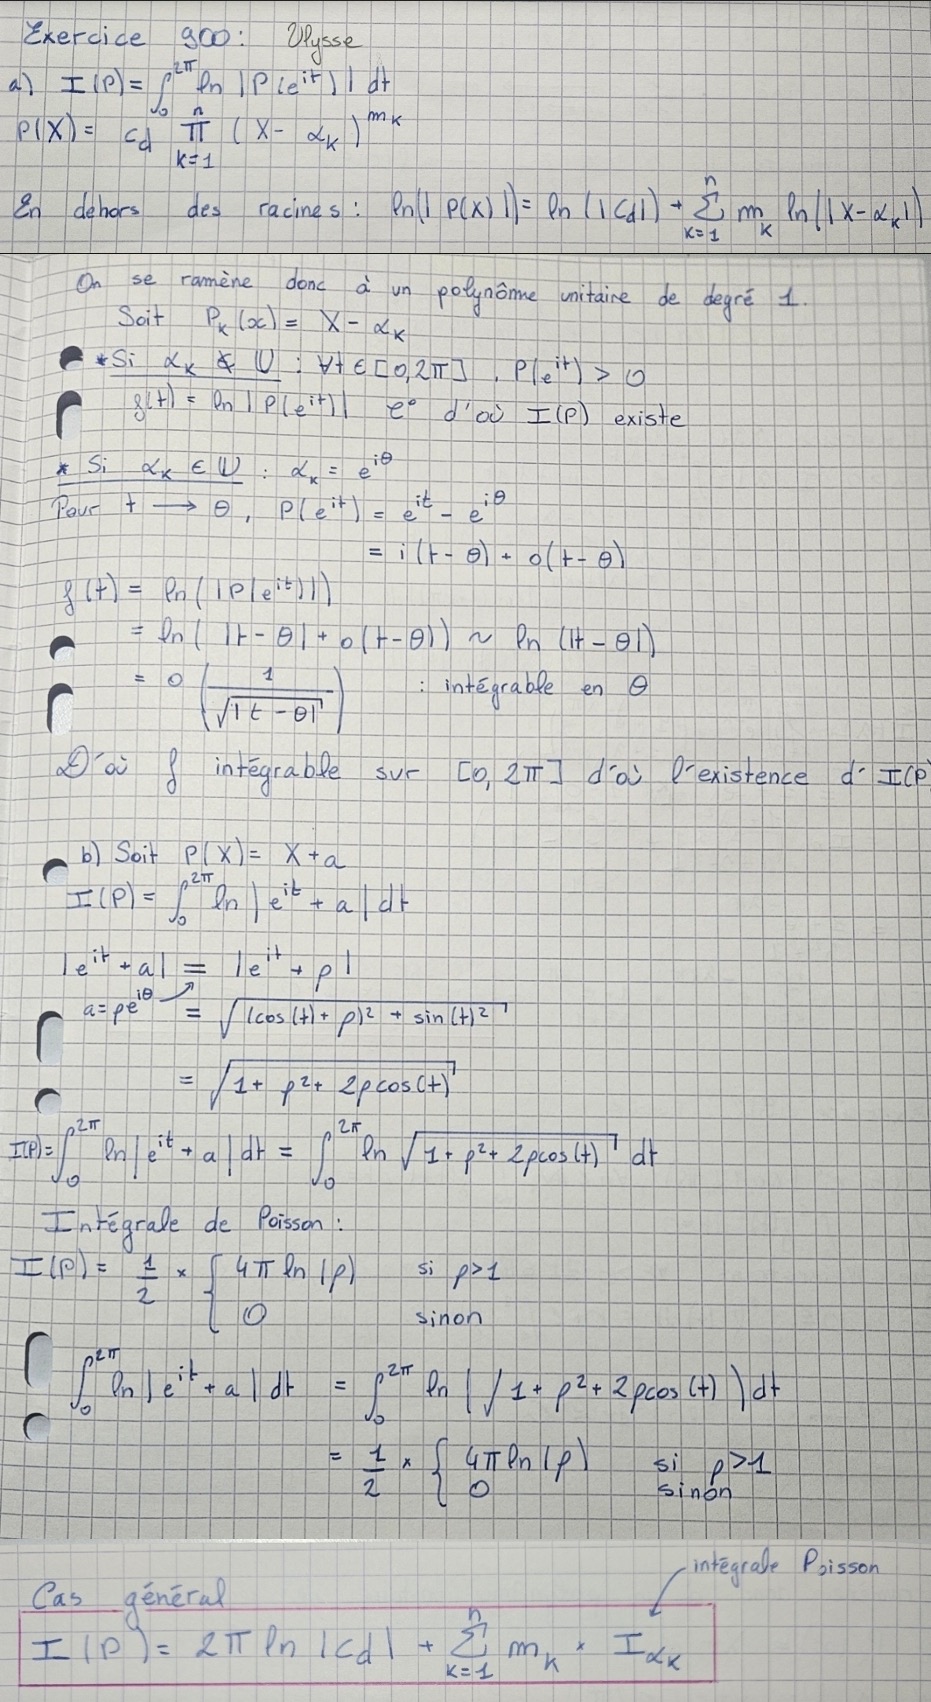 Exercice 900: Ulysse
a) I(P) = ∫₀^{2π} ln |P(e^{it})| dt
P(X) = c_d ∏_{k=1}^{n} (X - α_k)^{m_k}
En dehors des racines: ln(|P(X)|) = ln(|c_d|) + ∑_{k=1}^{n} m_k ln(|X-α_k|)
On se ramène donc à un polynôme unitaire de degré 1.
Soit P_k(x) = X - α_k
* Si α_k ∉ U : ∀t ∈ [0,2π], P(e^{it}) > 0
f(t) = ln |P(e^{it})| C⁰ d'où I(P) existe
* Si α_k ∈ U : α_k = e^{iθ}
Pour t → θ, P(e^{it}) = e^{it} - e^{iθ}
= i(t - θ) + o(t - θ)
f(t) = ln(|P(e^{it})|)
= ln( |t - θ| + o(t - θ)) ~ ln(|t - θ|)
= o(1/√|t - θ|) : intégrable en θ
D'où f intégrable sur [0, 2π] d'où l'existence d' I(P)
b) Soit P(X) = X + a
I(P) = ∫₀^{2π} ln |e^{it} + a| dt
|e^{it} + a| = |e^{it} + ρ|
a = ρe^{iθ} = √((cos(t) + ρ)² + sin(t)²)
= √(1 + ρ² + 2ρcos(t))
I(P) = ∫₀^{2π} ln |e^{it} + a| dt = ∫₀^{2π} ln √(1 + ρ² + 2ρcos(t)) dt
Intégrale de Poisson :
I(P) = 1/2 × { 4π ln(ρ) si ρ>1
0 sinon
∫₀^{2π} ln |e^{it} + a| dt = ∫₀^{2π} ln (√ 1 + ρ² + 2ρcos(t)) dt
= 1/2 × { 4π ln(ρ) si ρ>1
0 sinon
intégrale Poisson
Cas général
I(P) = 2π ln |c_d| + ∑_{k=1}^{n} m_k × I_{α_k}